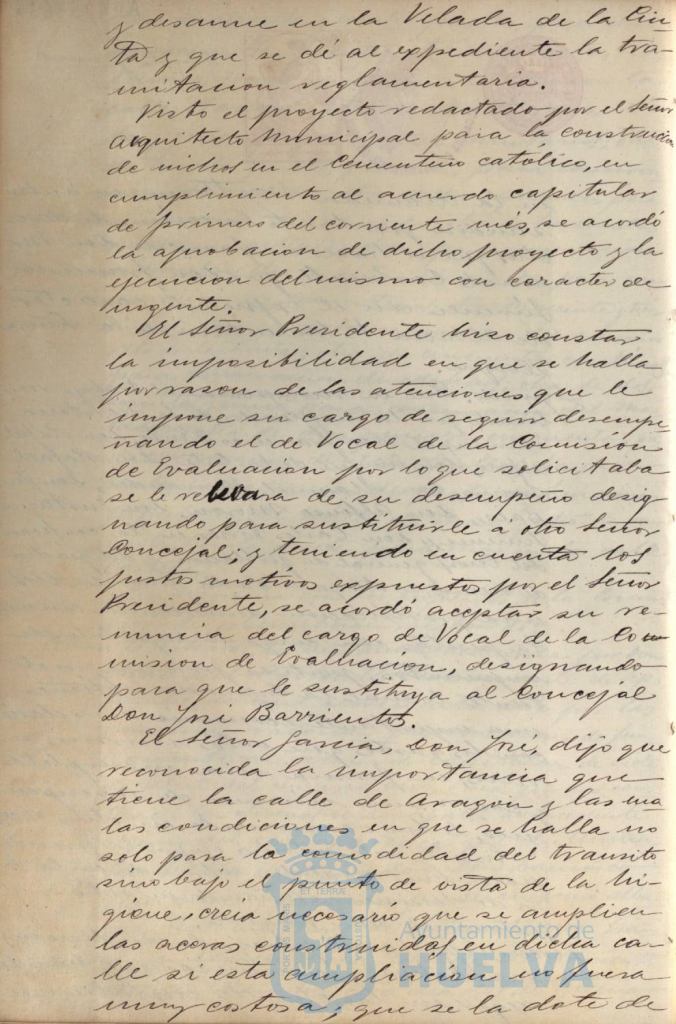 y desarme en la Velada de la Cin-
ta y que se dé al expediente la tra-
mitacion reglamentaria.
Visto el proyecto redactado por el Señor
Arquitecto Municipal para la construccion
de nichos en el Cementerio católico, en
cumplimiento al acuerdo capitular
de primero del corriente més, se acordó
la aprobacion de dicho proyecto y la
ejecucion del mismo con caracter de
urgente.
El Señor Presidente hizo constar
la imposibilidad en que se halla
por razon de las atenciones que le
impone su cargo de seguir desempe-
ñando el de Vocal de la Comision
de Evaluacion por lo que solicitaba
se le relevara de su desempeño desig
nando para sustituirle á otro Señor
Concejal; y teniendo en cuenta los
justos motivos expuestos por el Señor
Presidente, se acordó aceptar su re-
nuncia del cargo de Vocal de la Co-
mision de Evaluacion, designando
para que le sustituya al Concejal
Don José Barrientos.
El Señor Garcia, Don José, dijo que
reconocida la importancia que
tiene la calle de Aragon y las ma
las condiciones en que se halla no
solo para la comodidad del transito
sino bajo el punto de vista de la hi-
giene, creia necesario que se amplien
las aceras construidas en dicha ca-
lle si esta ampliacion no fuera
muy costosa; que se la dote de
Ayuntamiento de
HUELVA